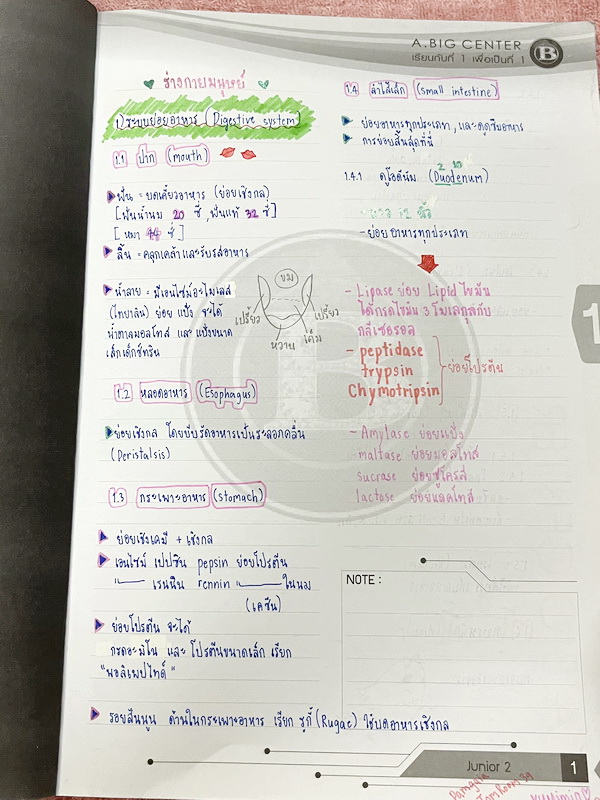 A.BIG CENTER
เรียนกับที่ 1 เพื่อเป็นที่ 1
B
ร่างกายมนุษย์
1) ระบบย่อยอาหาร (Digestive system)
1.1 ปาก (mouth)
ฟัน = บดเคี้ยวอาหาร (ย่อยเชิงกล)
[ฟันน้ำนม 20 ซี่, ฟันแท้ 32 ซี่]
[ หมา 44 ซี่ ]
ลิ้น = คลุกเคล้าและรับรสอาหาร
น้ำลาย = มีเอนไซม์อะไมเลส
(ไทยาลิน) ย่อย แป้ง จะได้
น้ำตาลมอลโทส และ แป้งขนาด
เล็กเด็กซ์ทริน
ขม
เปรี้ยว
เปรี้ยว
หวาน
เค็ม
1.2 หลอดอาหาร (Esophagus)
ย่อยเชิงกล โดยบีบรัดอาหารเป็นระลอกคลื่น
(Peristalsis)
1.3 กระเพาะอาหาร (Stomach)
ย่อยเชิงเคมี + เชิงกล
เอนไซม์ เปปซิน pepsin ย่อยโปรตีน
เรนนิน rennin ในนม
(เคซีน)
ย่อยโปรตีน จะได้
กรดอะมิโน และ โปรตีนขนาดเล็ก เรียก
"พอลิเพปไทด์"
รอยสันนูน ด้านในกระเพาะอาหาร เรียก รูกี้ (Rugae) ใช้บดอาหารเชิงกล
1.4 ลำไส้เล็ก (small intestine)
ย่อยอาหารทุกประเภท, และดูดซึมอาหาร
การย่อยสิ้นสุดที่นี่
1.4.1 ดูโอดีนัม (Duodenum)
2 10
12 นิ้ว
- ย่อยอาหารทุกประเภท
- Lipase ย่อย Lipid ไขมัน
ได้กรดไขมัน 3 โมเลกุลกับ
กลีเซอรอล
- peptidase
trypsin
Chymotripsin
ย่อยโปรตีน
- Amylase ย่อยแป้ง
maltase ย่อยมอลโทส
sucrase ย่อยซูโครส
lactase ย่อยแลคโทส
NOTE :
Junior 2
1